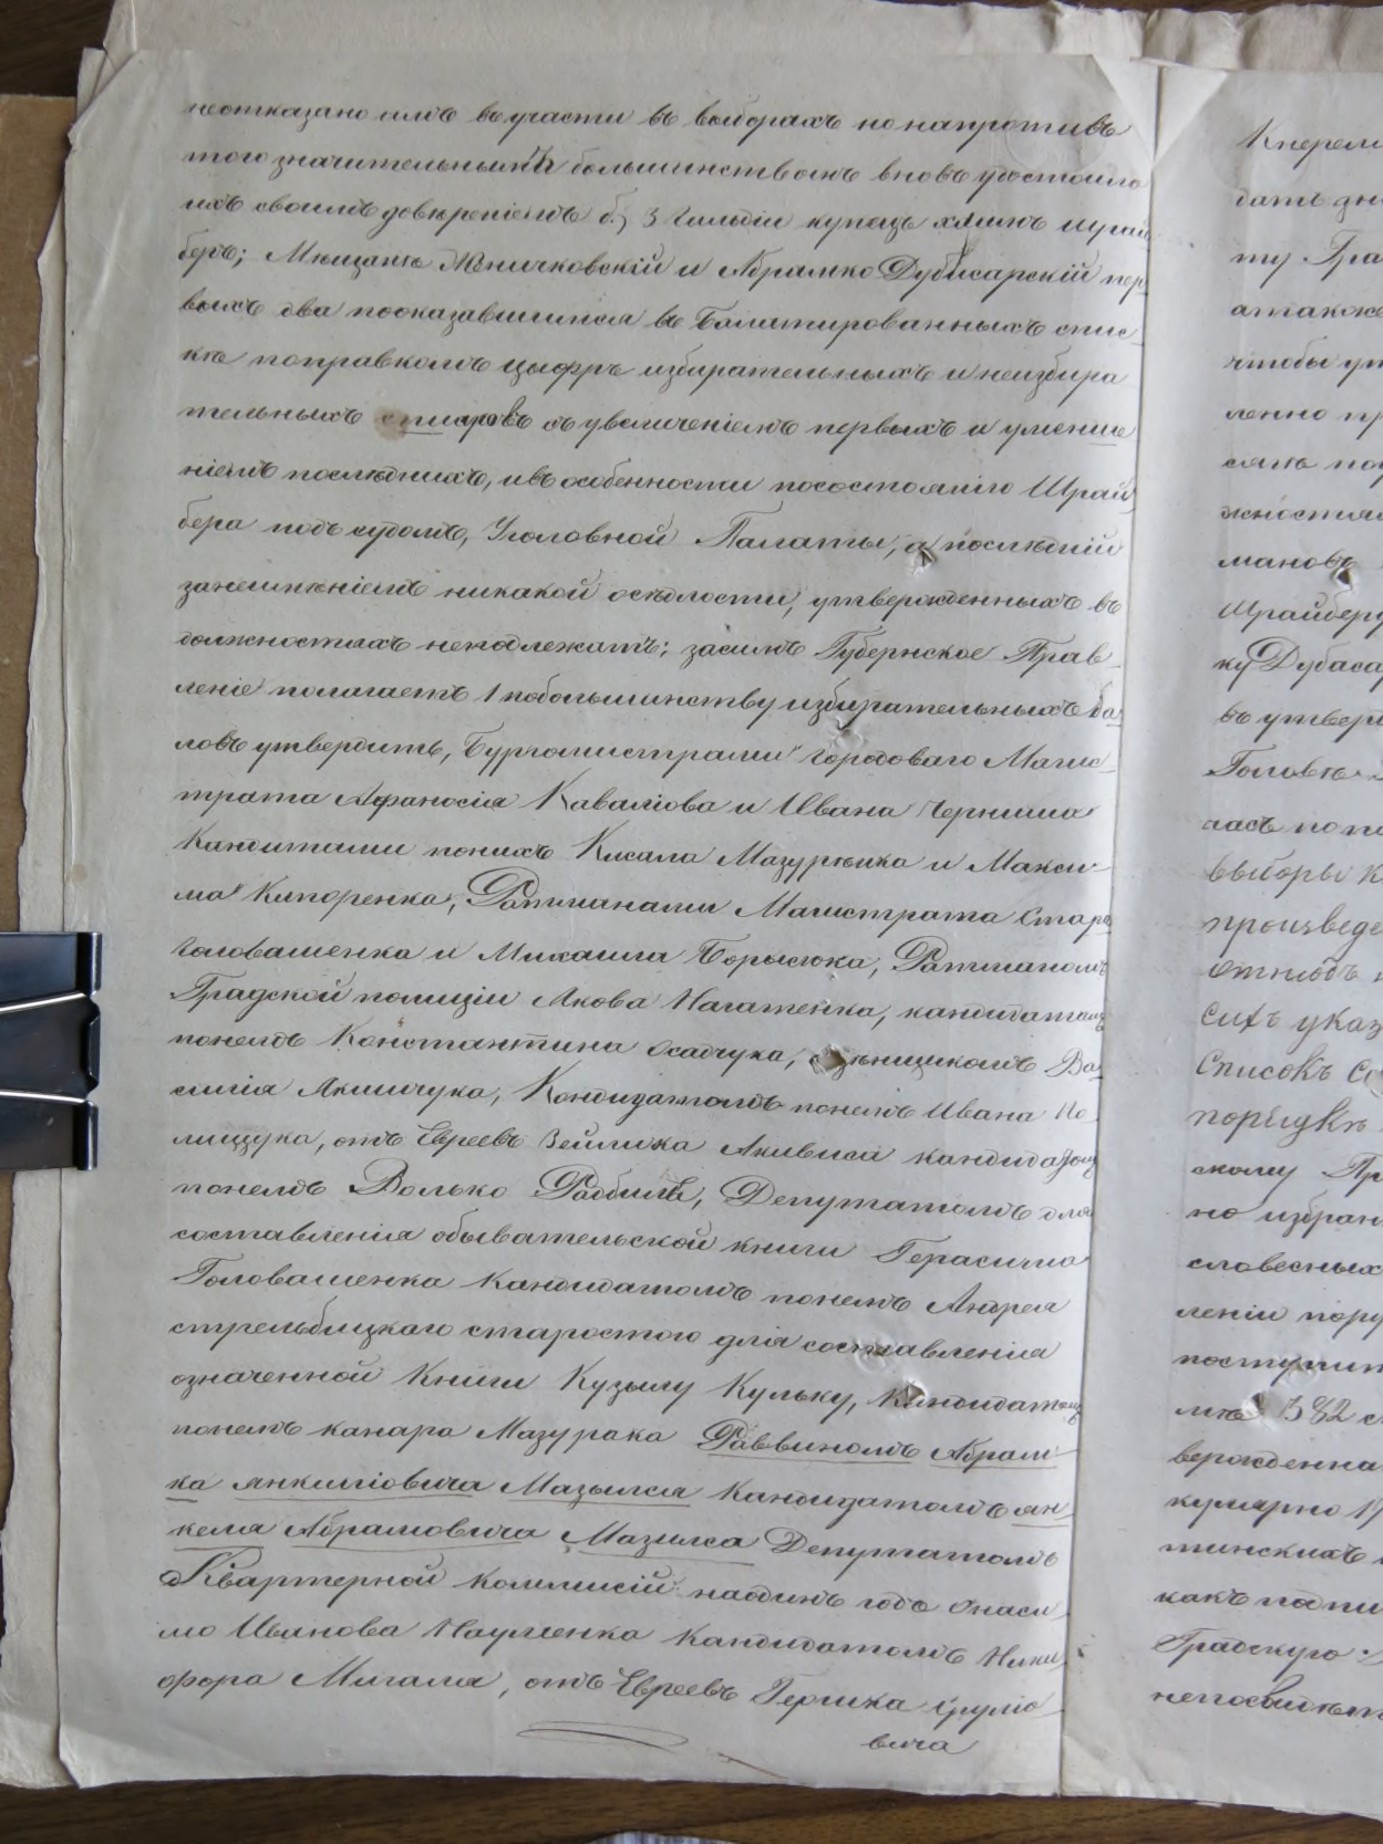 неотказано имъ въ участи въ выборахъ но напротивъ
того значительнымъ большинствомъ вновь удостоило
ихъ своимъ довѣреніемъ б., 3 Гильдіи купецъ Хаимъ Шрай
беръ; Мѣщане и Абрамко Дубисарскій пер
выхъ два пооказавшимся въ Балатированныхъ спис
кѣ поправкамъ цыфръ избирательныхъ и неизбира
тельныхъ съ увеличеніемъ первыхъ и уменше
ніемъ послѣднихъ, ивъ особенности посостоянію Шрай
бера подъ судомъ, Уголовной Палаты, а послѣдній
занеимѣніемъ никакой осѣдлости, утвержденныхъ въ
должностяхъ неподлежатъ; засимъ Губернское Прав
леніе полагаетъ 1 побольшинству избирательныхъ ба
ловъ утвердить, Бургомистрами городоваго Магис
трата Афанасія Каваліова и Ивана Черниша
Кандитами понихъ Мазуренка и Макси
ма Кипоренка, Ратманами Магистрата
Головашенка и Михаила Борисюка, Ратманомъ
Градской полиціи Якова Нагатенка, кандидатомъ
понемъ Константина Осадчука, Ва
силія Якимчука, Кондидатомъ понемъ Ивана По
лищука, отъ Евреевъ Зейлика Акивиса кандидатомъ
понемъ Волько Депутатомъ для
составленія обывательской книги Герасима
Головашенка Кандидатомъ понемъ Андрея
стрельбицкаго старостою для составленія
означенной Книги Кузьму Кульку, Кандидатомъ
понемъ Мазурака Раввиномъ Абрам
ка Янкиліовича Мазылса Кандидатомъ ян
келя Абрамовича Мазилса Депутатомъ
Квартерной Коммисіи наодинъ годъ Онаси
мо Иванова Науменка Кандидатомъ Ники
фора Мигаля, отъ Евреевъ Гершка Сруліо
вича
Кперем
дать
ту Гра
атакже
чтобы ут
ленно пр
сякъ
жностям
мановъ
Шрайберу
ку Дубаса
въ утвер
Головѣ
часъ
выборы к
произведе
отнюдъ
сихъ указ
списокъ
порядкѣ
скому Пр
но избран
словесныхъ
леніи пору
поступит
382
вержденна
кулярно
тинскихъ
какъ подпи
Градскую